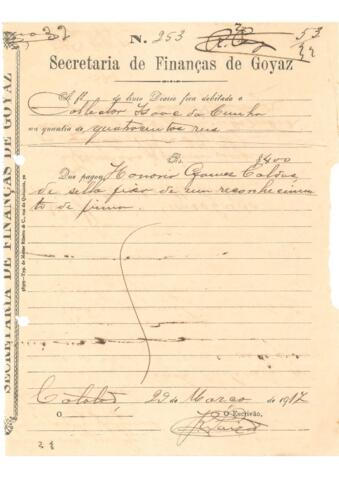 N. 253
53
Secretaria de Finanças de Goyaz
A fl. do livro Diario fica debitado o
Collector Isaac da Cunha
na quantia de quatrocentos reis
Rs. $400
Que pagou Honorio Gomes Caldas
de sello fixo de um reconhecimen
to de firma.
22 de Março de 1917
O O Escrivão,
SECRETARIA DE FINANÇAS DE GOYAZ